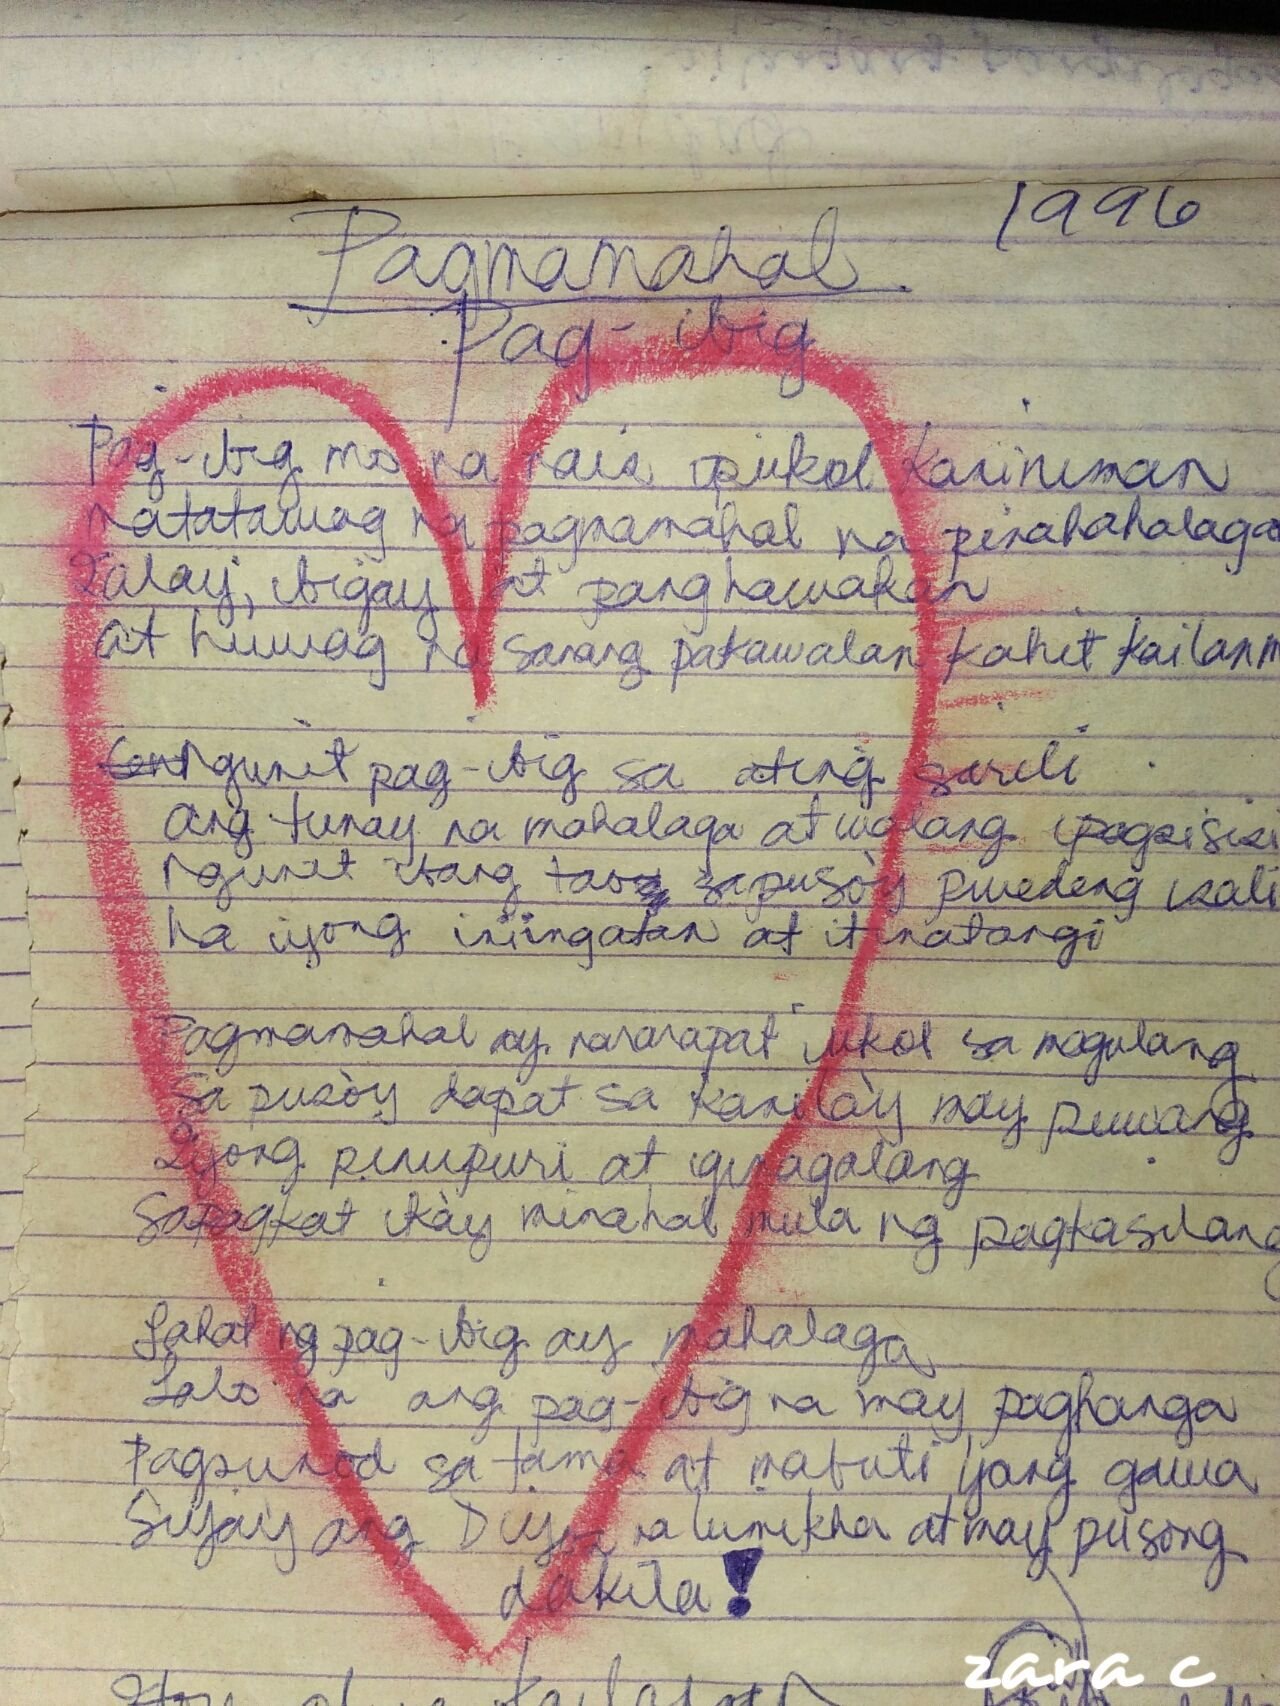 1996
Pagmamahal
Pag-ibig
Pag-ibig mo na nais ipukol kaninuman
natatawag ng pagmamahal na pinahahalaga
Ialay, ibigay at panghawakan
at huwag na sanang pakawalan kahit kailanm
Ngunit pag-ibig sa ating sarili
ang tunay na mahalaga at walang ipagsisisi
ngunit ibang taong sa puso'y pwedeng isali
na iyong iniingatan at itinatangi
Pagmamahal ay nararapat iukol sa magulang
Sa puso'y dapat sa kanila'y may puwang
Iyong pinupuri at iginagalang
Sapagkat ika'y minahal mula ng pagkasilang
Lahat ng pag-ibig ay mahalaga
Lalo na ang pag-ibig na may paghanga
Pagsunod sa tama at mabuti yang gawa
Siya'y ang Diyos na lumikha at may pusong
dakila!
zara c